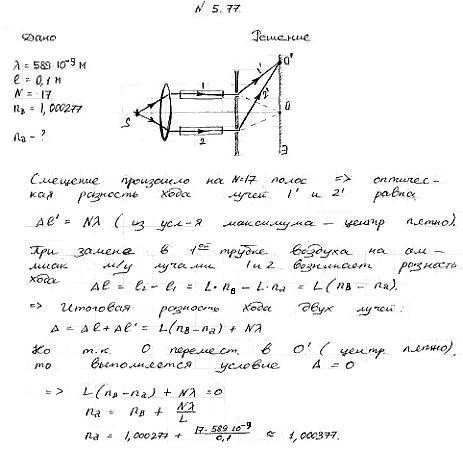 N 5.77.
Дано
Решение
λ = 589·10⁻⁹ м
ℓ = 0,1 м
N = 17
nв = 1,000277
nа - ?
S
1
2
1'
2'
O'
O
Э
Смещение произошло на N=17 полос => оптичес-
кая разность хода лучей 1' и 2' равна
Δℓ' = Nλ ( из усл-я максимума – центр пятно).
При замене в 1ой трубке воздуха на ам-
миак м/у лучами 1 и 2 возникает разность
хода Δℓ = ℓ₂ - ℓ₁ = L·nв - L·nа = L(nв - nа).
=> Итоговая разность хода двух лучей:
Δ = Δℓ + Δℓ' = L(nв - nа) + Nλ
Но т.к. O перемест. в O' ( центр пятно),
то выполняется условие Δ = 0
=> L(nв - nа) + Nλ = 0
nа = nв + Nλ/L
nа = 1,000277 + 17·589·10⁻⁹/0,1 ≈ 1,000377.